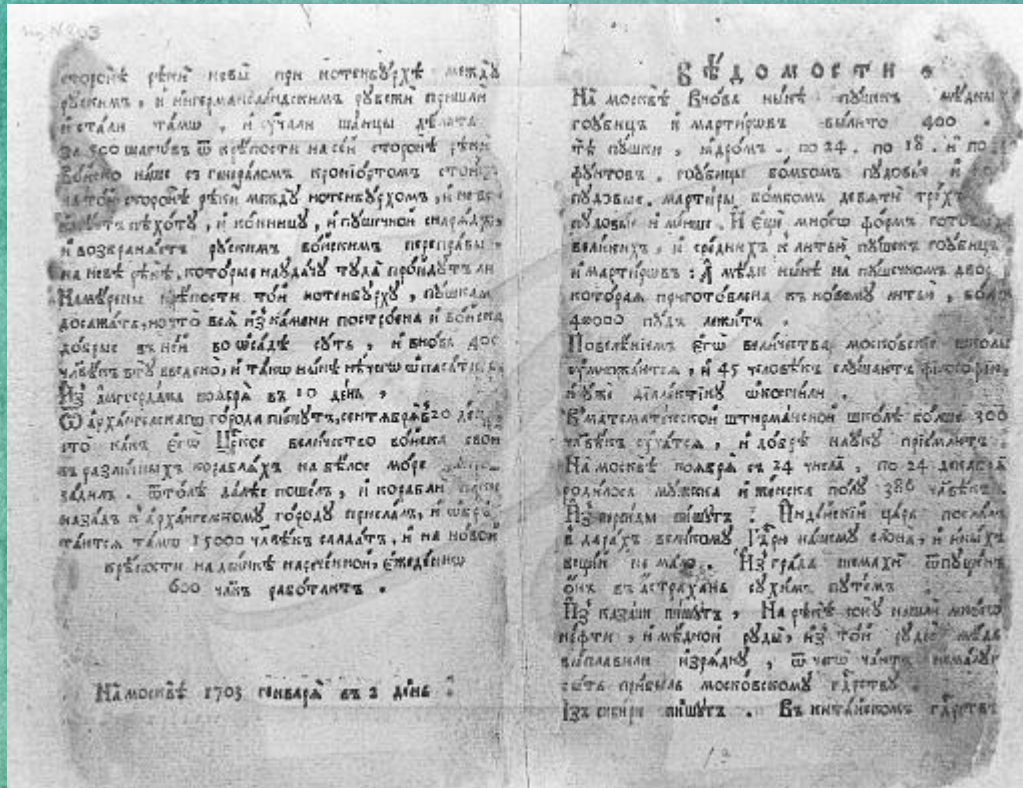 сторонѣ рѣки невы при нотенбурхѣ между
рускимъ, и ингерманландскимъ рубежи пришли
и стали тамѡ, и учали шанцы дѣлать
за 500 шагѡвъ ѿ крѣпости на сеи сторонѣ рѣки
воиско наше съ генераломъ крониортомъ стоитъ
на тои сторонѣ рѣки между нотенбурхомъ, и
пѣхоту, и конницу, и пушечнои снарядъ,
и возбраняетъ рускимъ воискимъ переправы
на невѣ рѣкѣ, которые наудачу туда проидутъ ли
Намѣрены крѣпости тои нотенбурху, пушкам
досажать, но что вся из камени построена и воиска
добрые въ неи во ѡсадѣ суть, и вновь
члвѣкъ введено, и такѡ нынѣ нѣчегѡ ѡпасатися
Из амстердама ноября въ 10 день,
Ѿ архангелскагѡ города пишутъ, сентября въ 20 день
что какъ егѡ Цр҃кое величество воиска свои
въ различныхъ корабляхъ на бѣлое море
задилъ. ѿтолѣ далѣе пошелъ, и корабли паки
назадъ к архангелскому городу прислалъ, и ѡбрѣ
таются тамѡ 15000 члвѣкъ салдатъ, и на новои
крѣпости на двинкѣ нареченнои, ежеденнѡ
600 члк҃ъ работаютъ.
На москвѣ 1703 генваря въ 2 день :
ВѢДОМОСТИ.
На москвѣ вновь нынѣ пушекъ мѣдныхъ
гоубицъ и мартирѡвъ вылито 400.
тѣ пушки, ядромъ. по 24. по 18. и по
фунтовъ. гоубицы бомбомъ пудовые и
пудовые. мартиры бомбомъ девяти трехъ
пудовые и менше. И еще многѡ формъ готовыхъ
великихъ, и среднихъ к литью пушекъ гоубицъ
и мартирѡвъ : А мѣди нынѣ на пушечномъ дворѣ
которая приготовлена къ новому литью, болши
40000 пудъ лежитъ.
Повелѣниемъ егѡ величества московские школы
умножаются, и 45 человѣкъ слушаютъ филосоѳию,
и уже диалектику ѡкончили.
В математическои штюрманскои школѣ болше 300
члвѣкъ учатся, и добрѣ науку приемлютъ.
На москвѣ ноября съ 24 числа, по 24 декабря
родилося мужска и женска полу 386 члвѣкъ.
Из персиды пишутъ : Индѣискии царь послалъ
в дарахъ великому Гдр҃ю нашему слона, и иныхъ
вещеи не малѡ. Из града шемахи ѿпущенъ
онъ въ астрахань сухимъ путемъ
Из казани пишутъ, На рѣкѣ соку нашли многѡ
нефти, и мѣднои руды, из тои руды мѣдь
выплавили изрядну, ѿ чегѡ чаютъ немалую
быть прибыль московскому гдр҃ству.
Із сибири пишутъ. Въ китаискомъ гдр҃ствѣ